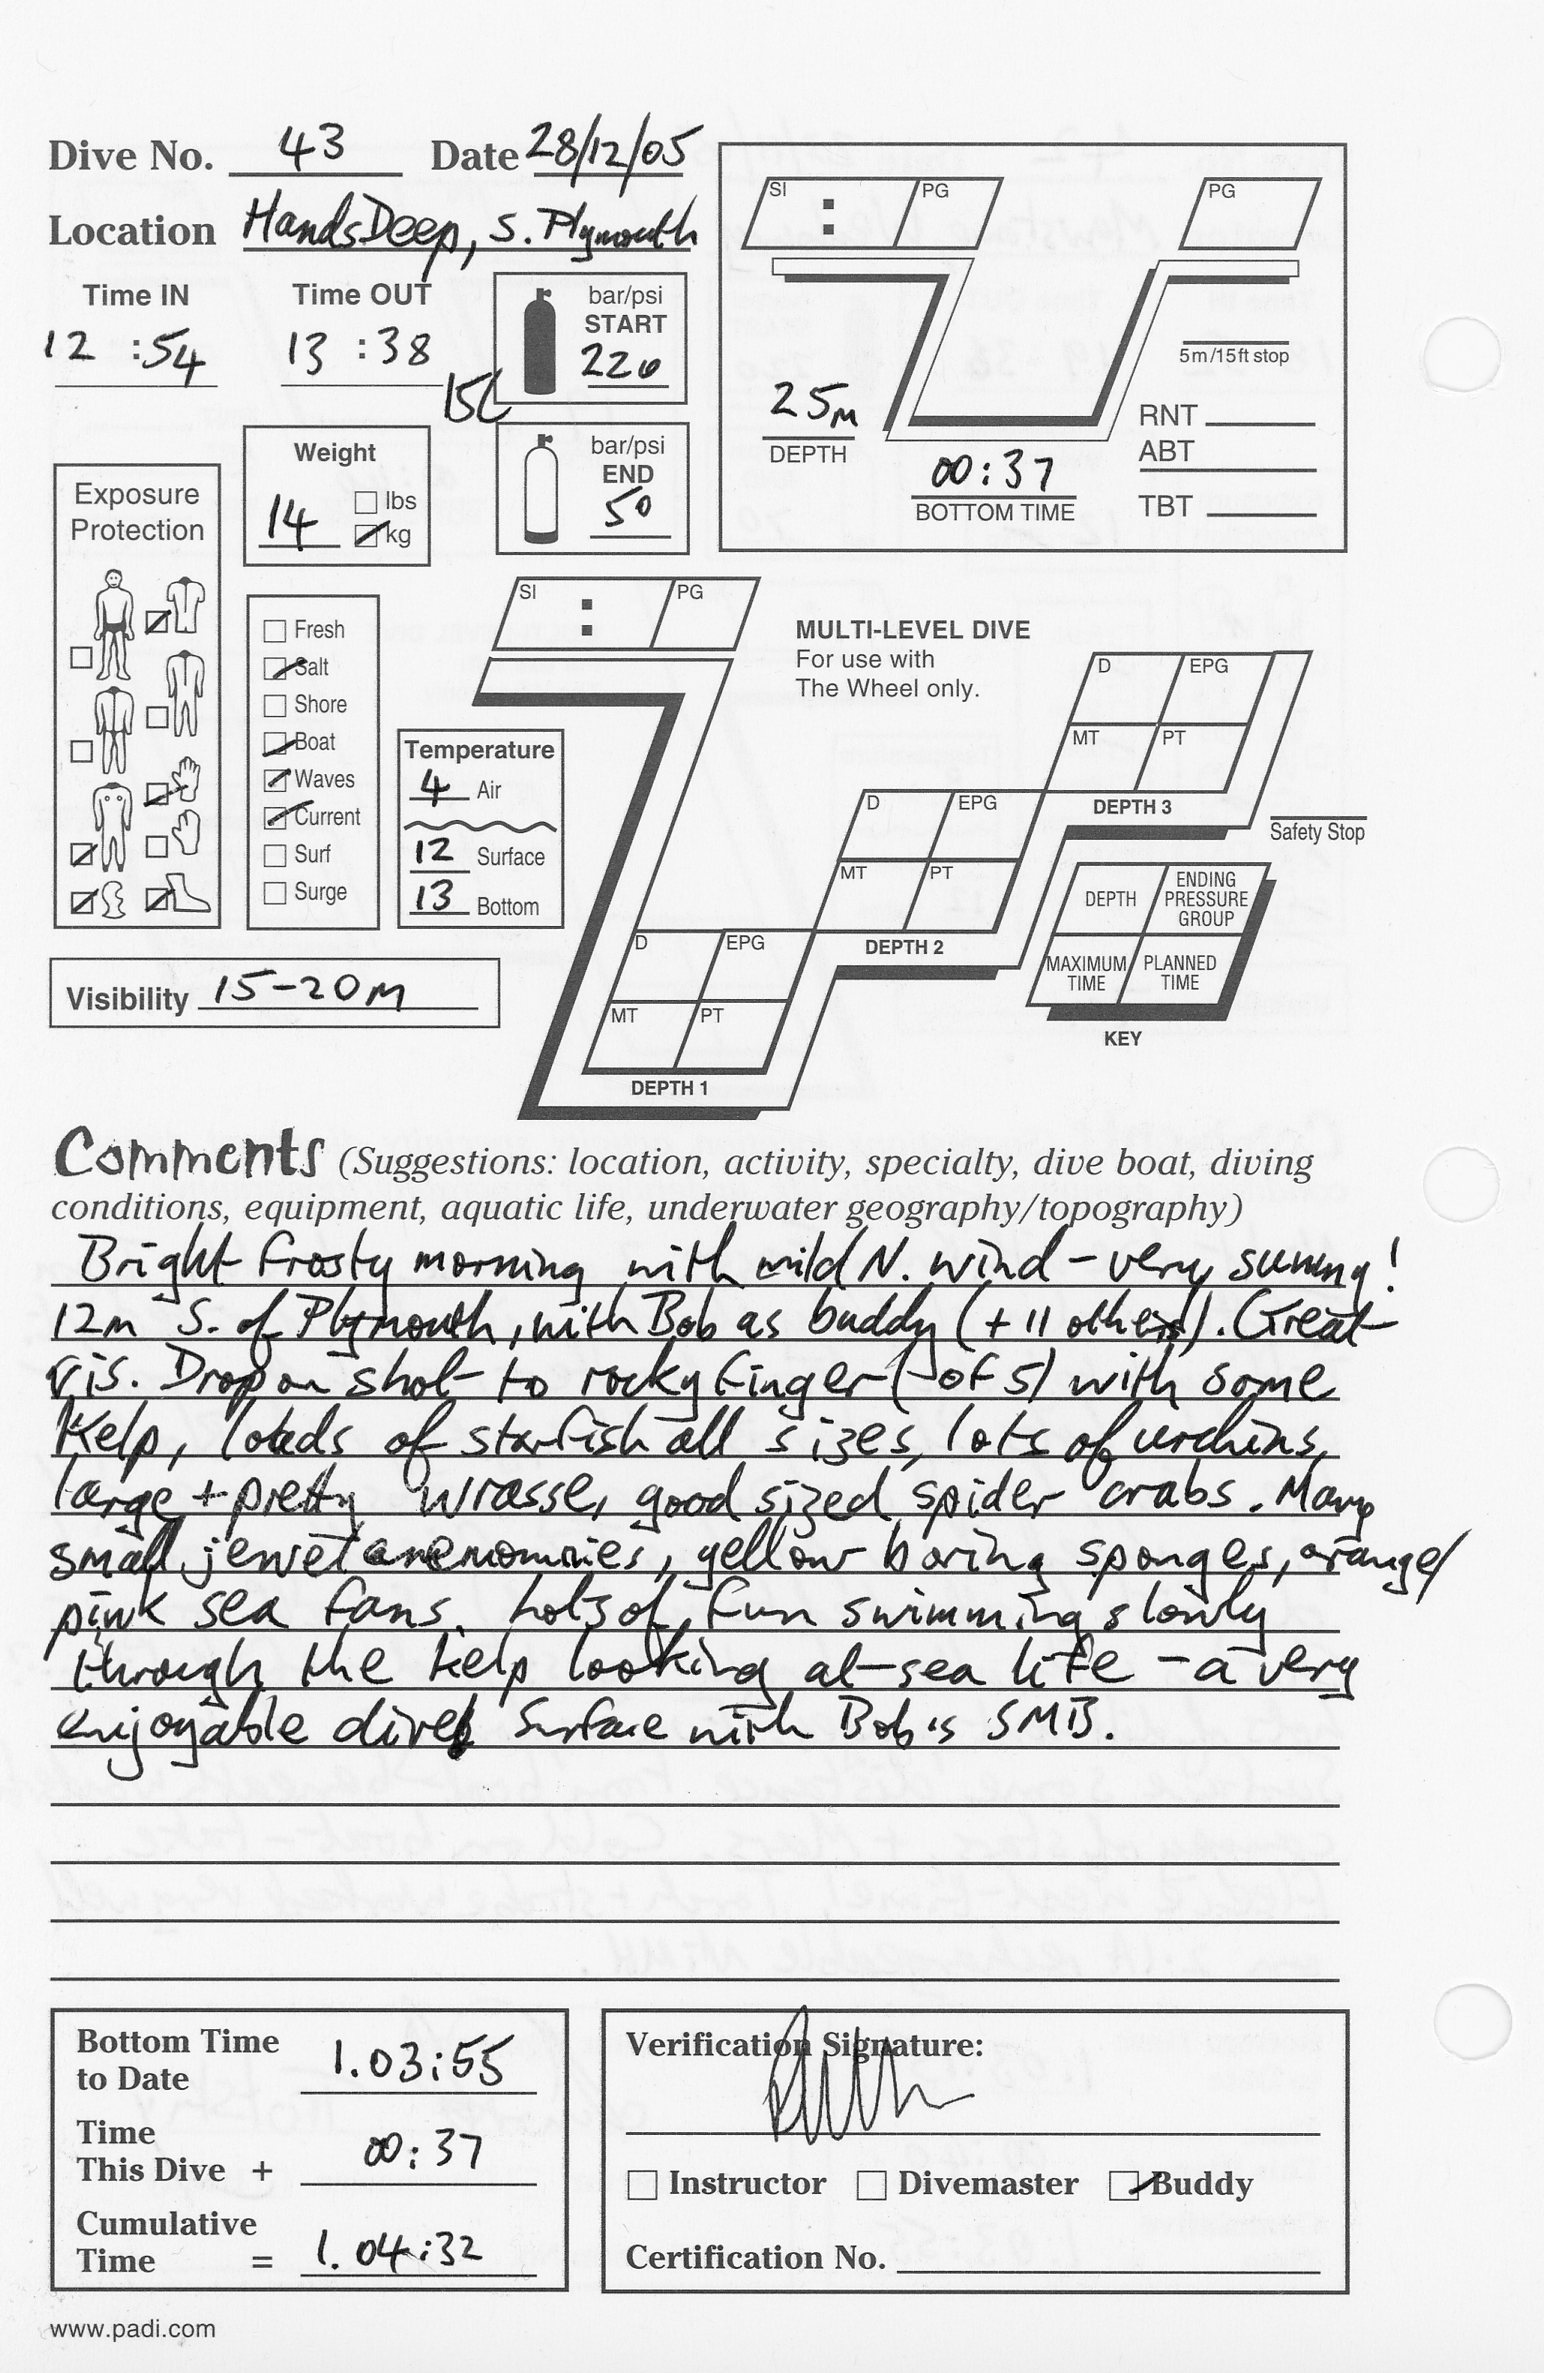 Dive No. 43 Date 28/12/05
Location HandsDeep, S. Plymouth
Time IN Time OUT
12 :54 13 :38
15L
bar/psi
START
220
bar/psi
END
50
Weight
14
lbs
kg
Exposure
Protection
Fresh
Salt
Shore
Boat
Waves
Current
Surf
Surge
Temperature
4 Air
12 Surface
13 Bottom
Visibility 15-20m
SI : PG
PG
5m/15ft stop
25m
DEPTH
00:37
BOTTOM TIME
RNT
ABT
TBT
SI : PG
MULTI-LEVEL DIVE
For use with
The Wheel only.
D EPG
MT PT
DEPTH 3
Safety Stop
D EPG
MT PT
DEPTH 2
D EPG
MT PT
DEPTH 1
DEPTH
ENDING
PRESSURE
GROUP
MAXIMUM
TIME
PLANNED
TIME
KEY
Comments (Suggestions: location, activity, specialty, dive boat, diving
conditions, equipment, aquatic life, underwater geography/topography)
Bright frosty morning with mild N. wind - very sunny!
12m S. of Plymouth, with Bob as buddy (+ 11 others). Great
vis. Drop on shot to rocky finger (of 5) with some
Kelp, loads of starfish all sizes, lots of urchins,
large + pretty wrasse, good sized spider crabs. Many
small jewel anemomnies, yellow boring sponges, orange/
pink sea fans. Lots of fun swimming slowly
through the kelp looking at sea life - a very
enjoyable dive. Surface with Bob's SMB.
Bottom Time
to Date 1.03:55
Time
This Dive + 00:37
Cumulative
Time = 1.04:32
Verification Signature:
Instructor Divemaster Buddy
Certification No.
www.padi.com